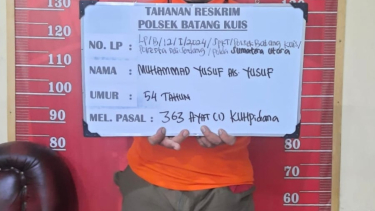 TAHANAN RESKRIM
POLSEK BATANG KUIS
NO. LP : LP/B/12/I/2024/SPKT/Polsek Batang Kuis/
Polresta Deli Serdang/Polda Sumatera Utara
NAMA : MUHAMMAD YUSUF als YUSUF
UMUR : 54 TAHUN
MEL. PASAL : 363 AYAT (1) KUHPidana
130 130
120
110 110
100
90 90
80 80
70 70
60 60